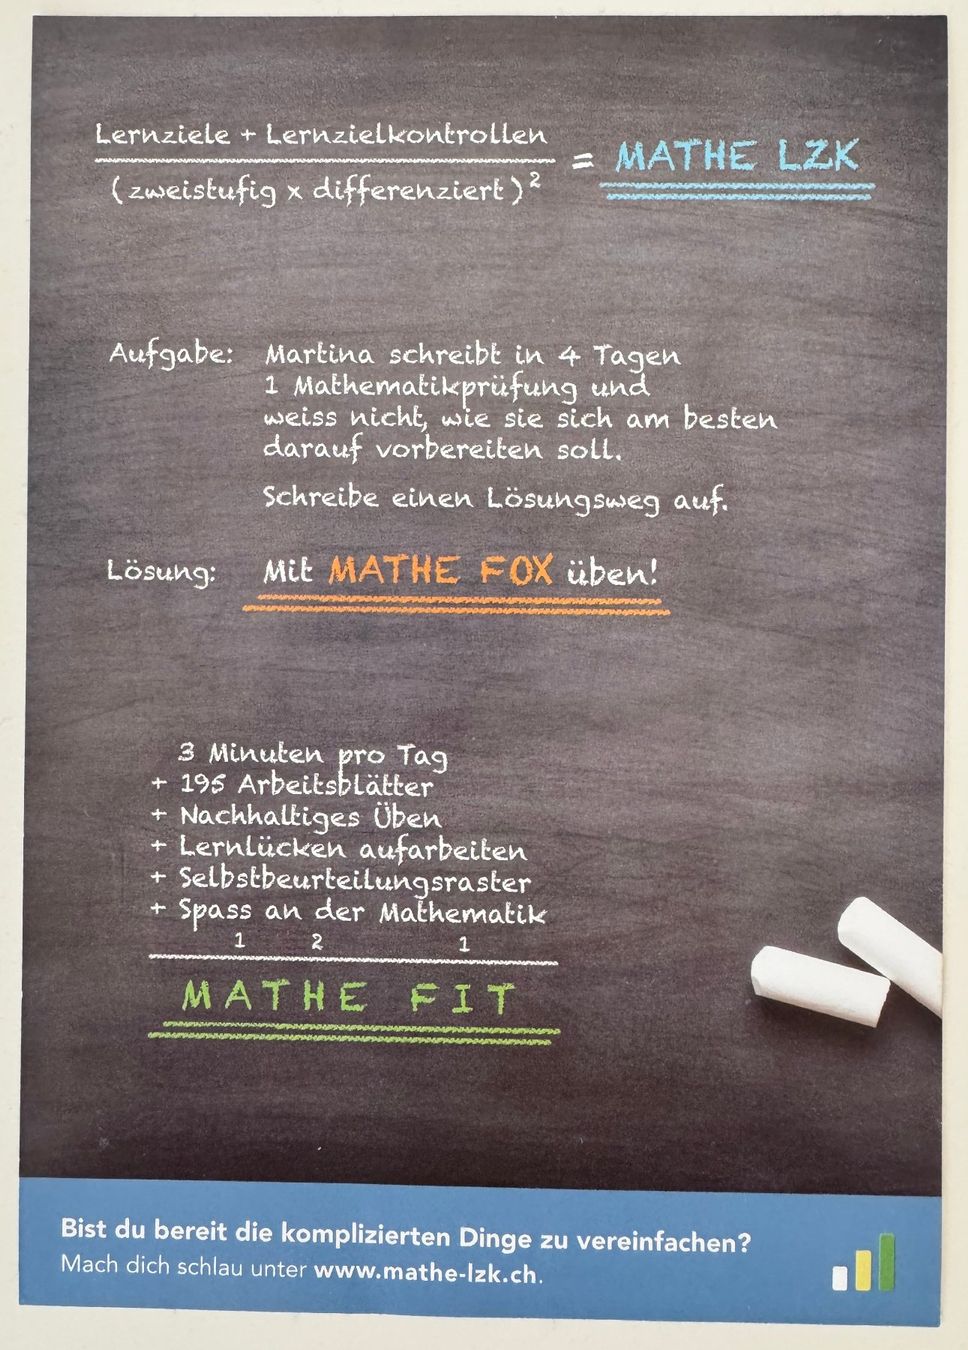 Lernziele + Lernzielkontrollen
(zweistufig x differenziert)² = MATHE LZK
Aufgabe: Martina schreibt in 4 Tagen
1 Mathematikprüfung und
weiss nicht, wie sie sich am besten
darauf vorbereiten soll.
Schreibe einen Lösungsweg auf.
Lösung: Mit MATHE FOX üben!
3 Minuten pro Tag
+ 195 Arbeitsblätter
+ Nachhaltiges Üben
+ Lernlücken aufarbeiten
+ Selbstbeurteilungsraster
+ Spass an der Mathematik
1 2 1
MATHE FIT
Bist du bereit die komplizierten Dinge zu vereinfachen?
Mach dich schlau unter www.mathe-lzk.ch.